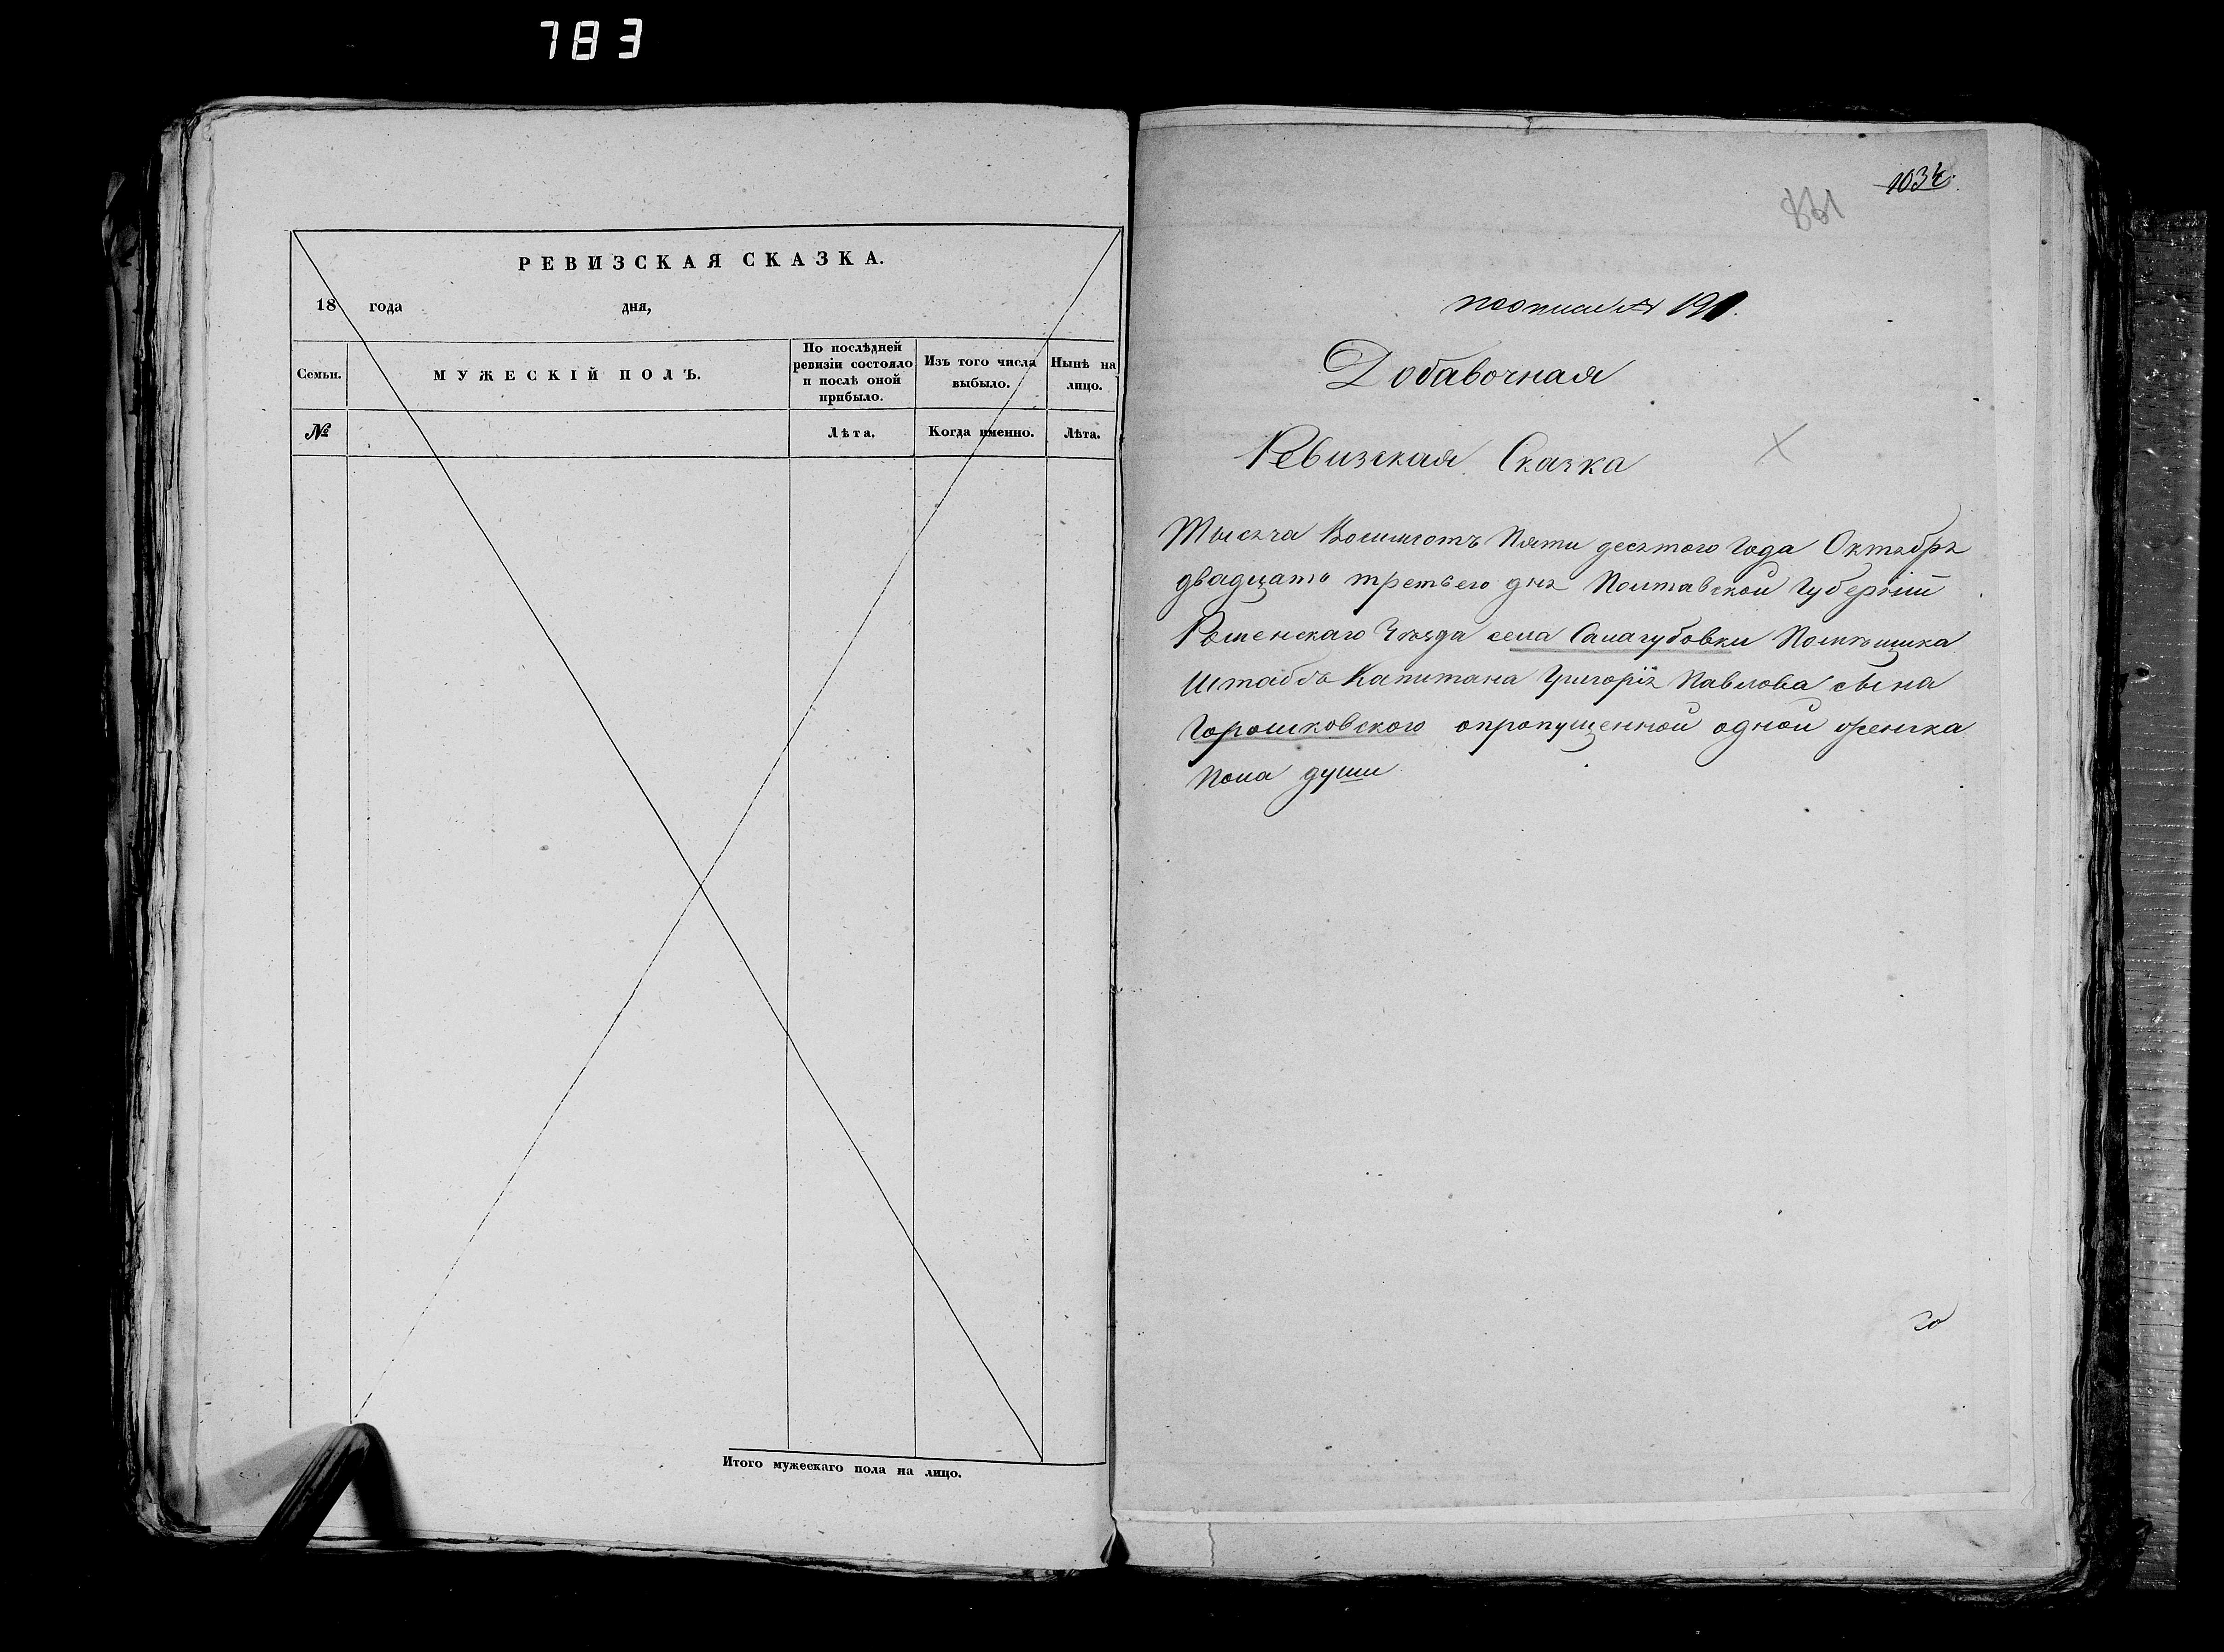 783
РЕВИЗСКАЯ СКАЗКА.
18 года дня,
Семьи.
МУЖЕСКІЙ ПОЛЪ.
По послѣдней ревизіи состояло и послѣ оной прибыло.
Изъ того числа выбыло.
Нынѣ на лицо.
№
Лѣта.
Когда именно.
Лѣта.
Итого мужескаго пола на лицо.
1034.
861
по описи № 191.
Добавочная
Ревизская Сказка
Тысяча Восимсотъ Пяти десятого Года Октября
двадцать третьего дня Полтавской Губерніи
Роменскаго Уѣзда села Салагубовки Помѣщика
Штабсъ Капитана Григорія Павлова сына
Горошковского опропущенной одной женска
Пола души